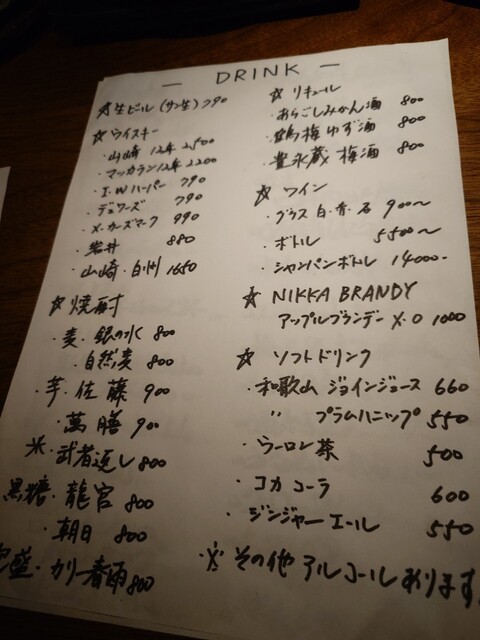 — DRINK —
☆生ビール (サン生) 790
☆ウイスキー
・山崎 12年 2500
・マッカラン12年 2200
・I.Wハーパー 790
・デュワーズ 790
・メーカーズマーク 990
・岩井 880
・山崎・白州 1650
☆焼酎
・麦・銀の水 800
・自然麦 800
・芋・佐藤 900
・萬膳 900
米・武者返し 800
黒糖・龍宮 800
・朝日 800
盛・カリー春雨 800
☆リキュール
・あらごしみかん酒 800
・鶴梅ゆず酒 800
・豊永蔵 梅酒 800
☆ワイン
・グラス 白・赤・ 900〜
・ボトル 5500〜
・シャンパンボトル 14000-
☆ NIKKA BRANDY
アップルブランデー X.O 1000
☆ソフトドリンク
・和歌山 ジョインジュース 660
〃 プラムハニップ 550
・ウーロン茶 500
・コカコーラ 600
・ジンジャーエール 550
※その他アルコールあります